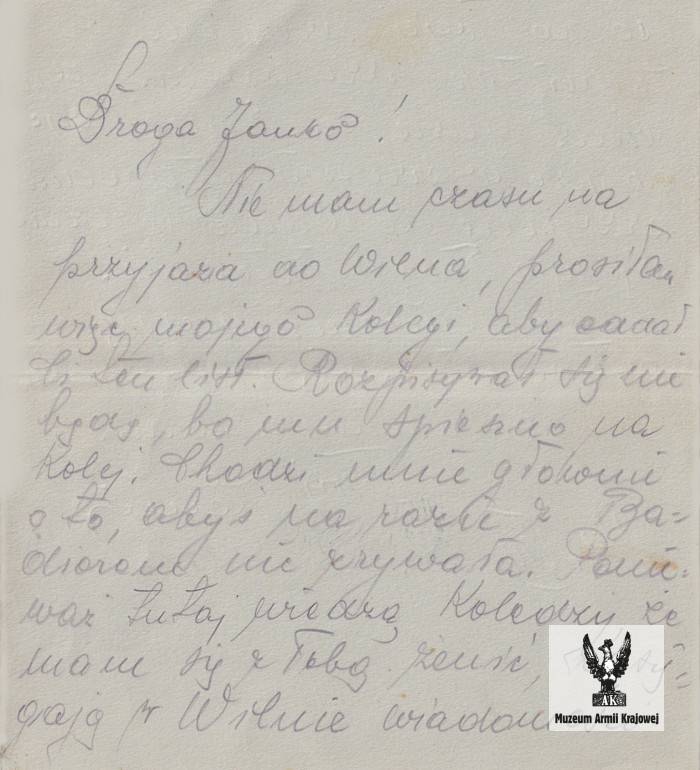 Droga Janko!
Nie mam czasu na
przyjazd do Wilna, prosiłem
więc mojego Kolegi, aby oddał
Ci ten list. Rozpisywał się nie
będę, bo mu spieszno na
Kolej. Chodzi mnie głównie
o to, abyś na razie z
nie zrywała. Ponie-
waż tutaj wiedzą Koledzy, że
mam się z Tobą żenić,
gają w Wilnie
AK
Muzeum Armii Krajowej